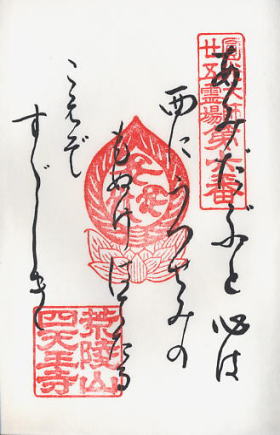 圓光大師
廿五霊場
第六番
あみだぶと心は
西にうつせみの
もぬけはてたる
こゑぞ
すゞしき
荒陵山
四天王寺